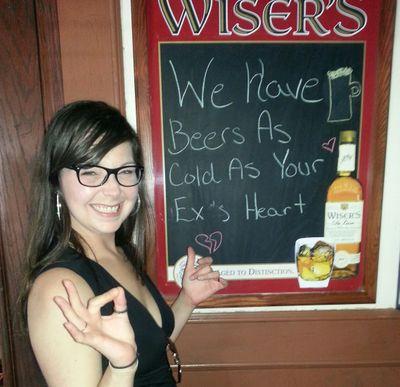 WISER'S
We Have
Beers As
Cold As Your
Ex's Heart
WISER'S
De Luxe
AGED TO DISTINCTION.